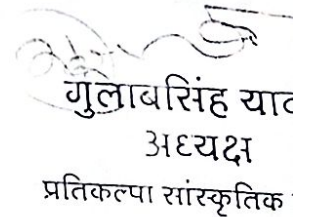 गुलाबसिंह
अध्यक्ष
प्रतिकल्पा सांस्कृतिक